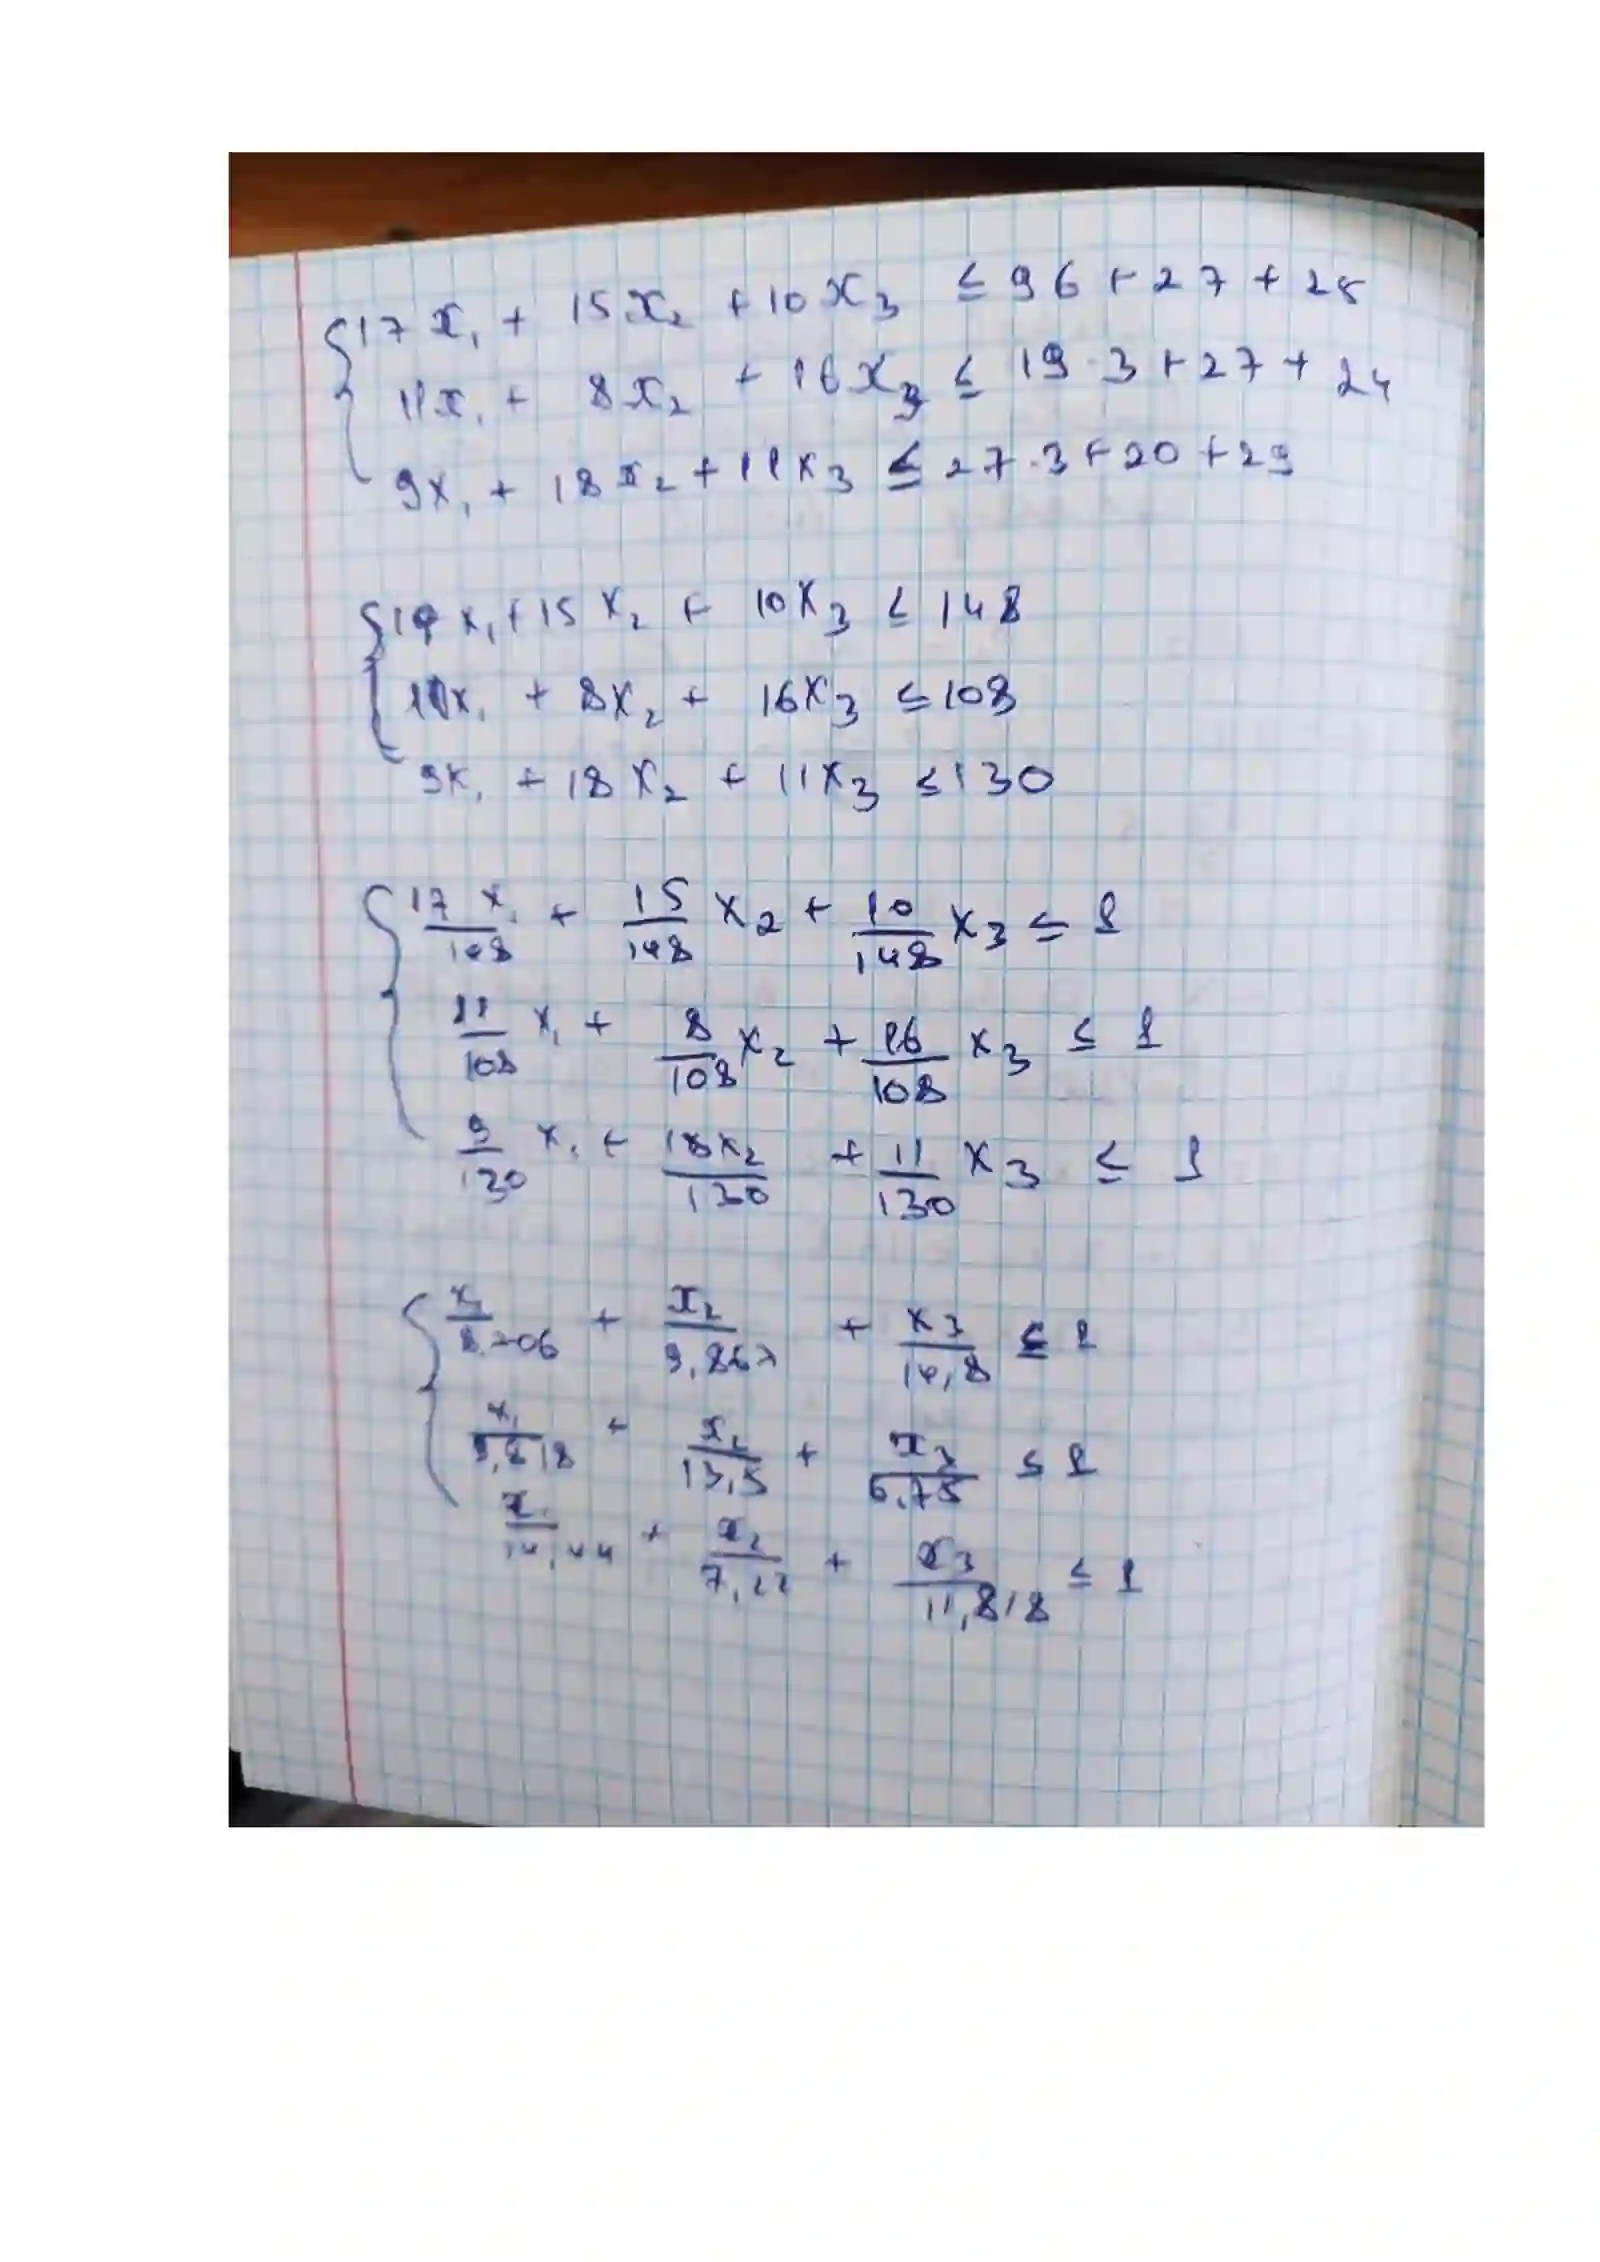 17x₁ + 15x₂ + 10x₃ ≤ 96 + 27 + 25
11x₁ + 8x₂ + 16x₃ ≤ 19·3 + 27 + 24
9x₁ + 18x₂ + 11x₃ ≤ 27·3 + 20 + 29
17x₁ + 15x₂ + 10x₃ ≤ 148
11x₁ + 8x₂ + 16x₃ ≤ 108
9x₁ + 18x₂ + 11x₃ ≤ 130
17x₁/148 + 15/148 x₂ + 10/148 x₃ ≤ 1
11/108 x₁ + 8/108 x₂ + 16/108 x₃ ≤ 1
9/130 x₁ + 18x₂/130 + 11/130 x₃ ≤ 1
x₁/8,706 + x₂/9,867 + x₃/14,8 ≤ 1
x₁/9,818 + x₂/13,5 + x₃/6,75 ≤ 1
x₁/14,44 + x₂/7,22 + x₃/11,818 ≤ 1